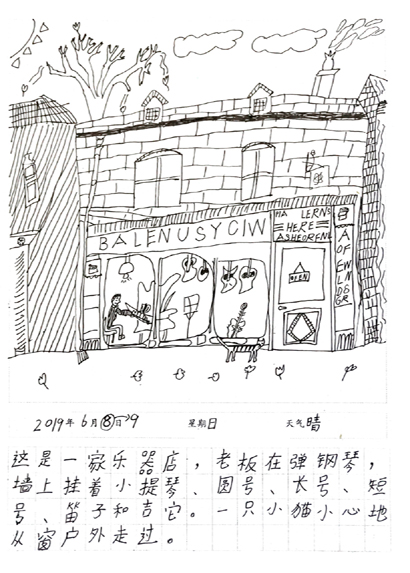 BALENUSYCIW
HA LERNS
HERE
ASHEORENL
OPEN
2019年 6月 8日→9 星期日 天气晴
这是一家乐器店，老板在弹钢琴，
墙上挂着小提琴、圆号、长号、短
号、笛子和吉它。一只小猫小心地
从窗户外走过。